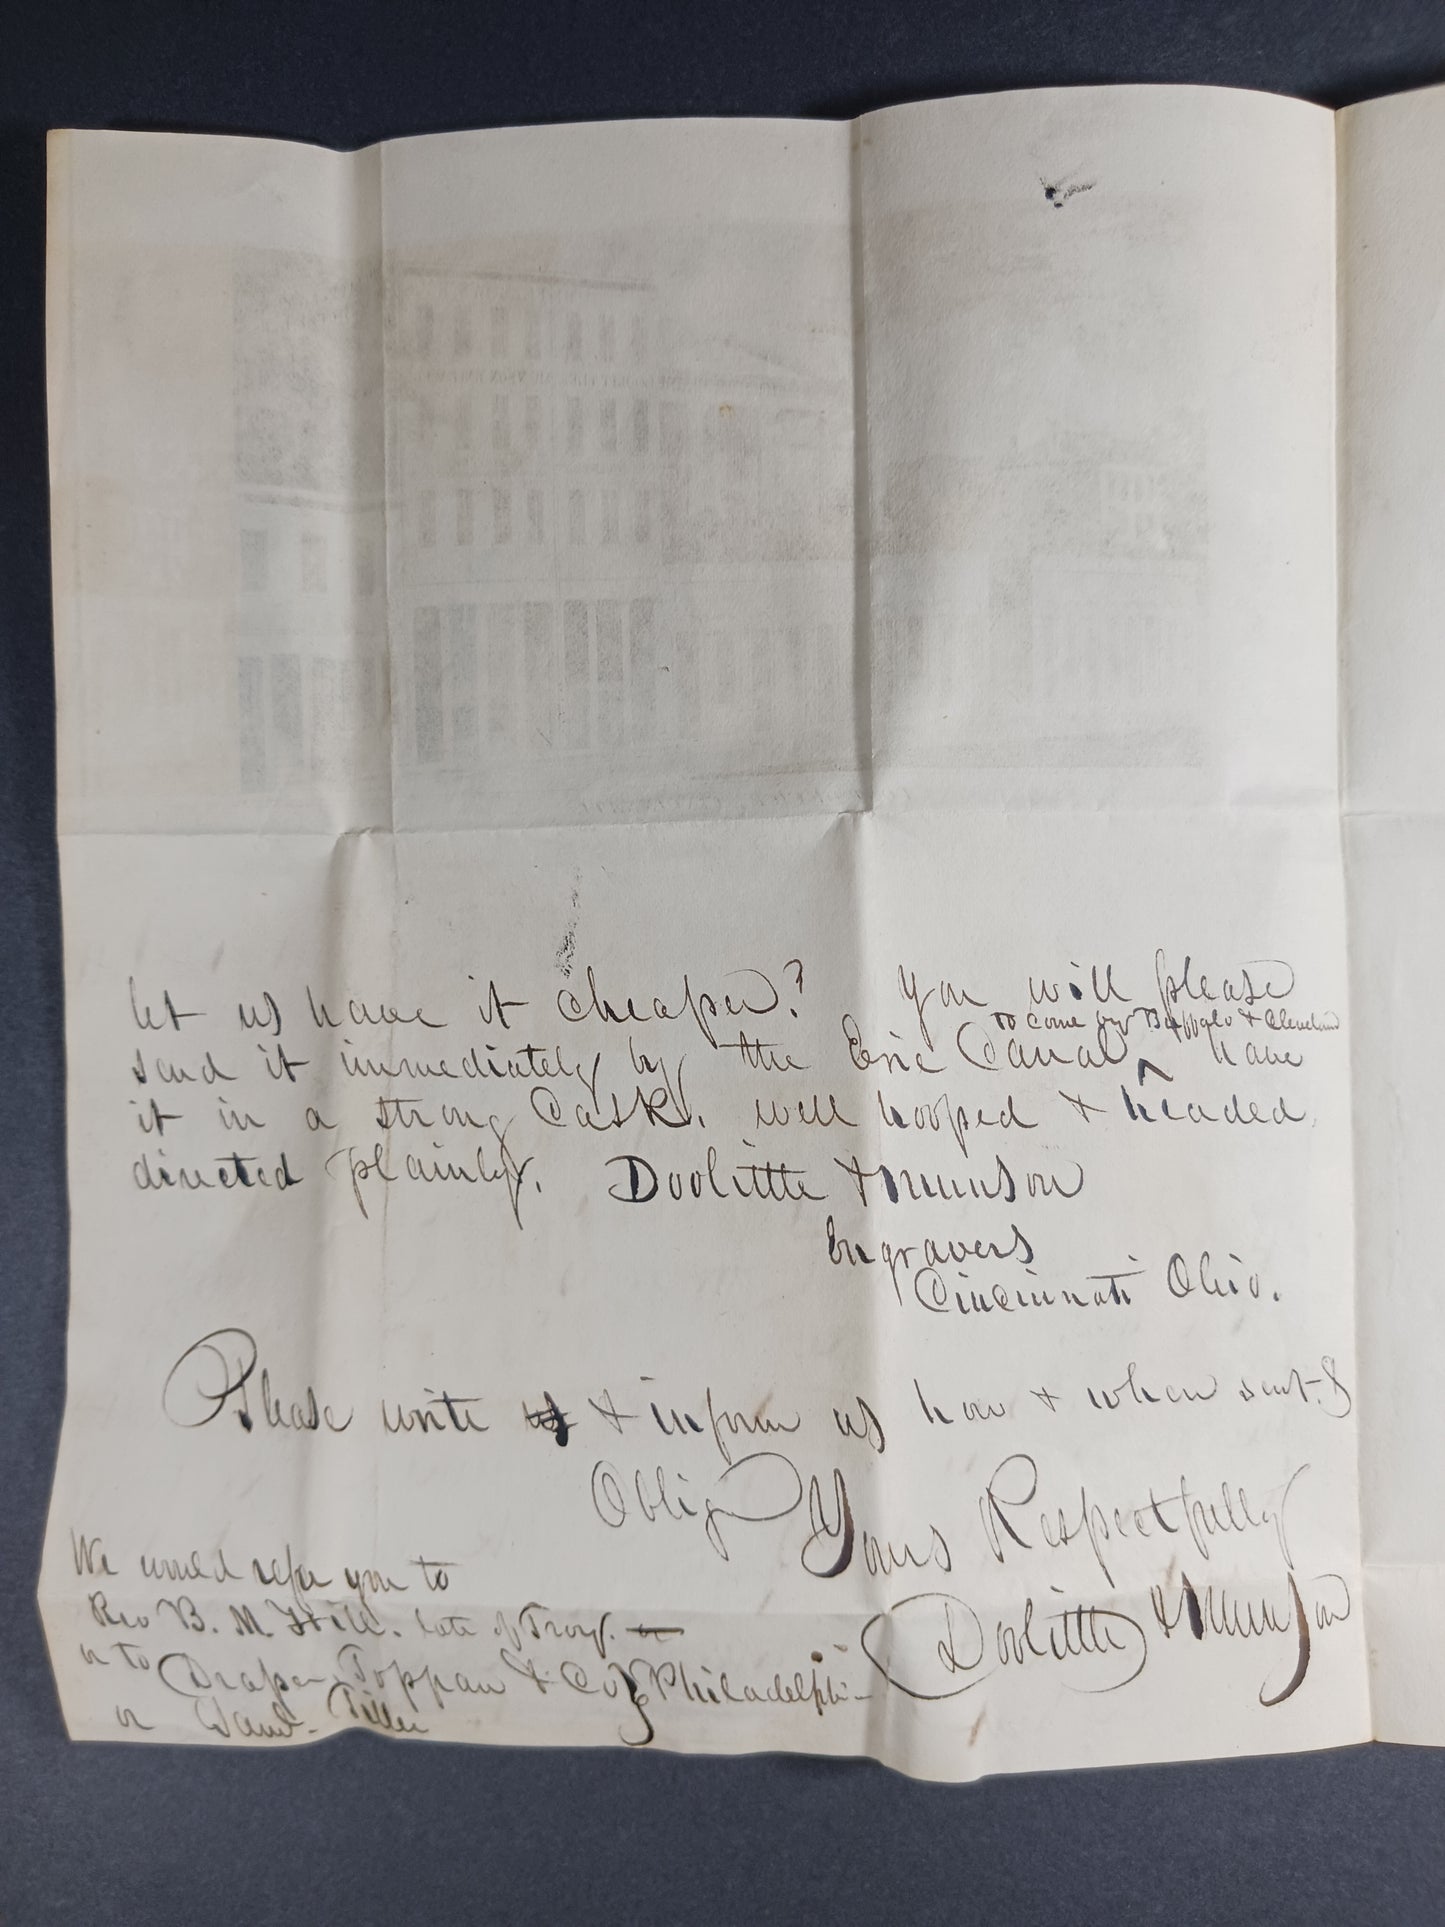 let us have it cheaper? You will please
to come by Buffalo & Cleveland
send it immediately by the Erie Canal ^ have
it in a strong Cask, well hooped & headed
directed plainly. Doolittle & Munson
Engravers
Cincinnati Ohio.
Please write us & inform us how & when sent. &
Oblige
Yours Respectfully
Doolittle & Munson
We would refer you to
Rev B. M. Hill. late of Troy. or
or to Draper Toppan & Co Philadelphia
or Danl. Tiller